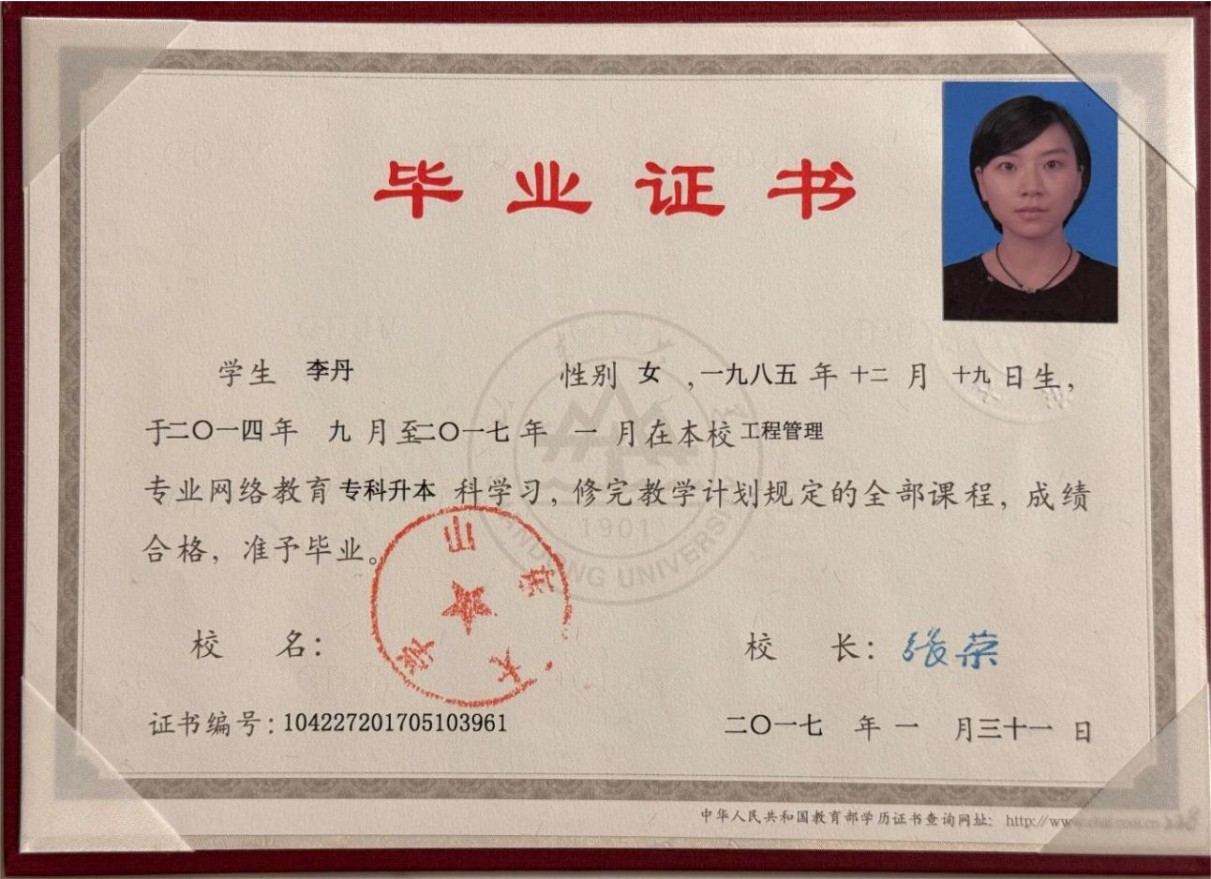 毕业证书
学生 李丹 性别 女 ,一九八五 年 十二 月 十九 日生,
于二〇一四年 九 月至二〇一七年 一 月在本校 工程管理
专业网络教育 专科升本 科学习, 修完教学计划规定的全部课程, 成绩
合格, 准予毕业。
山东大学
1901
SHANDONG UNIVERSITY
校 名: 校 长: 张荣
证书编号: 104227201705103961 二〇一七 年 一 月三十一 日
中华人民共和国教育部学历证书查询网址: http://ww